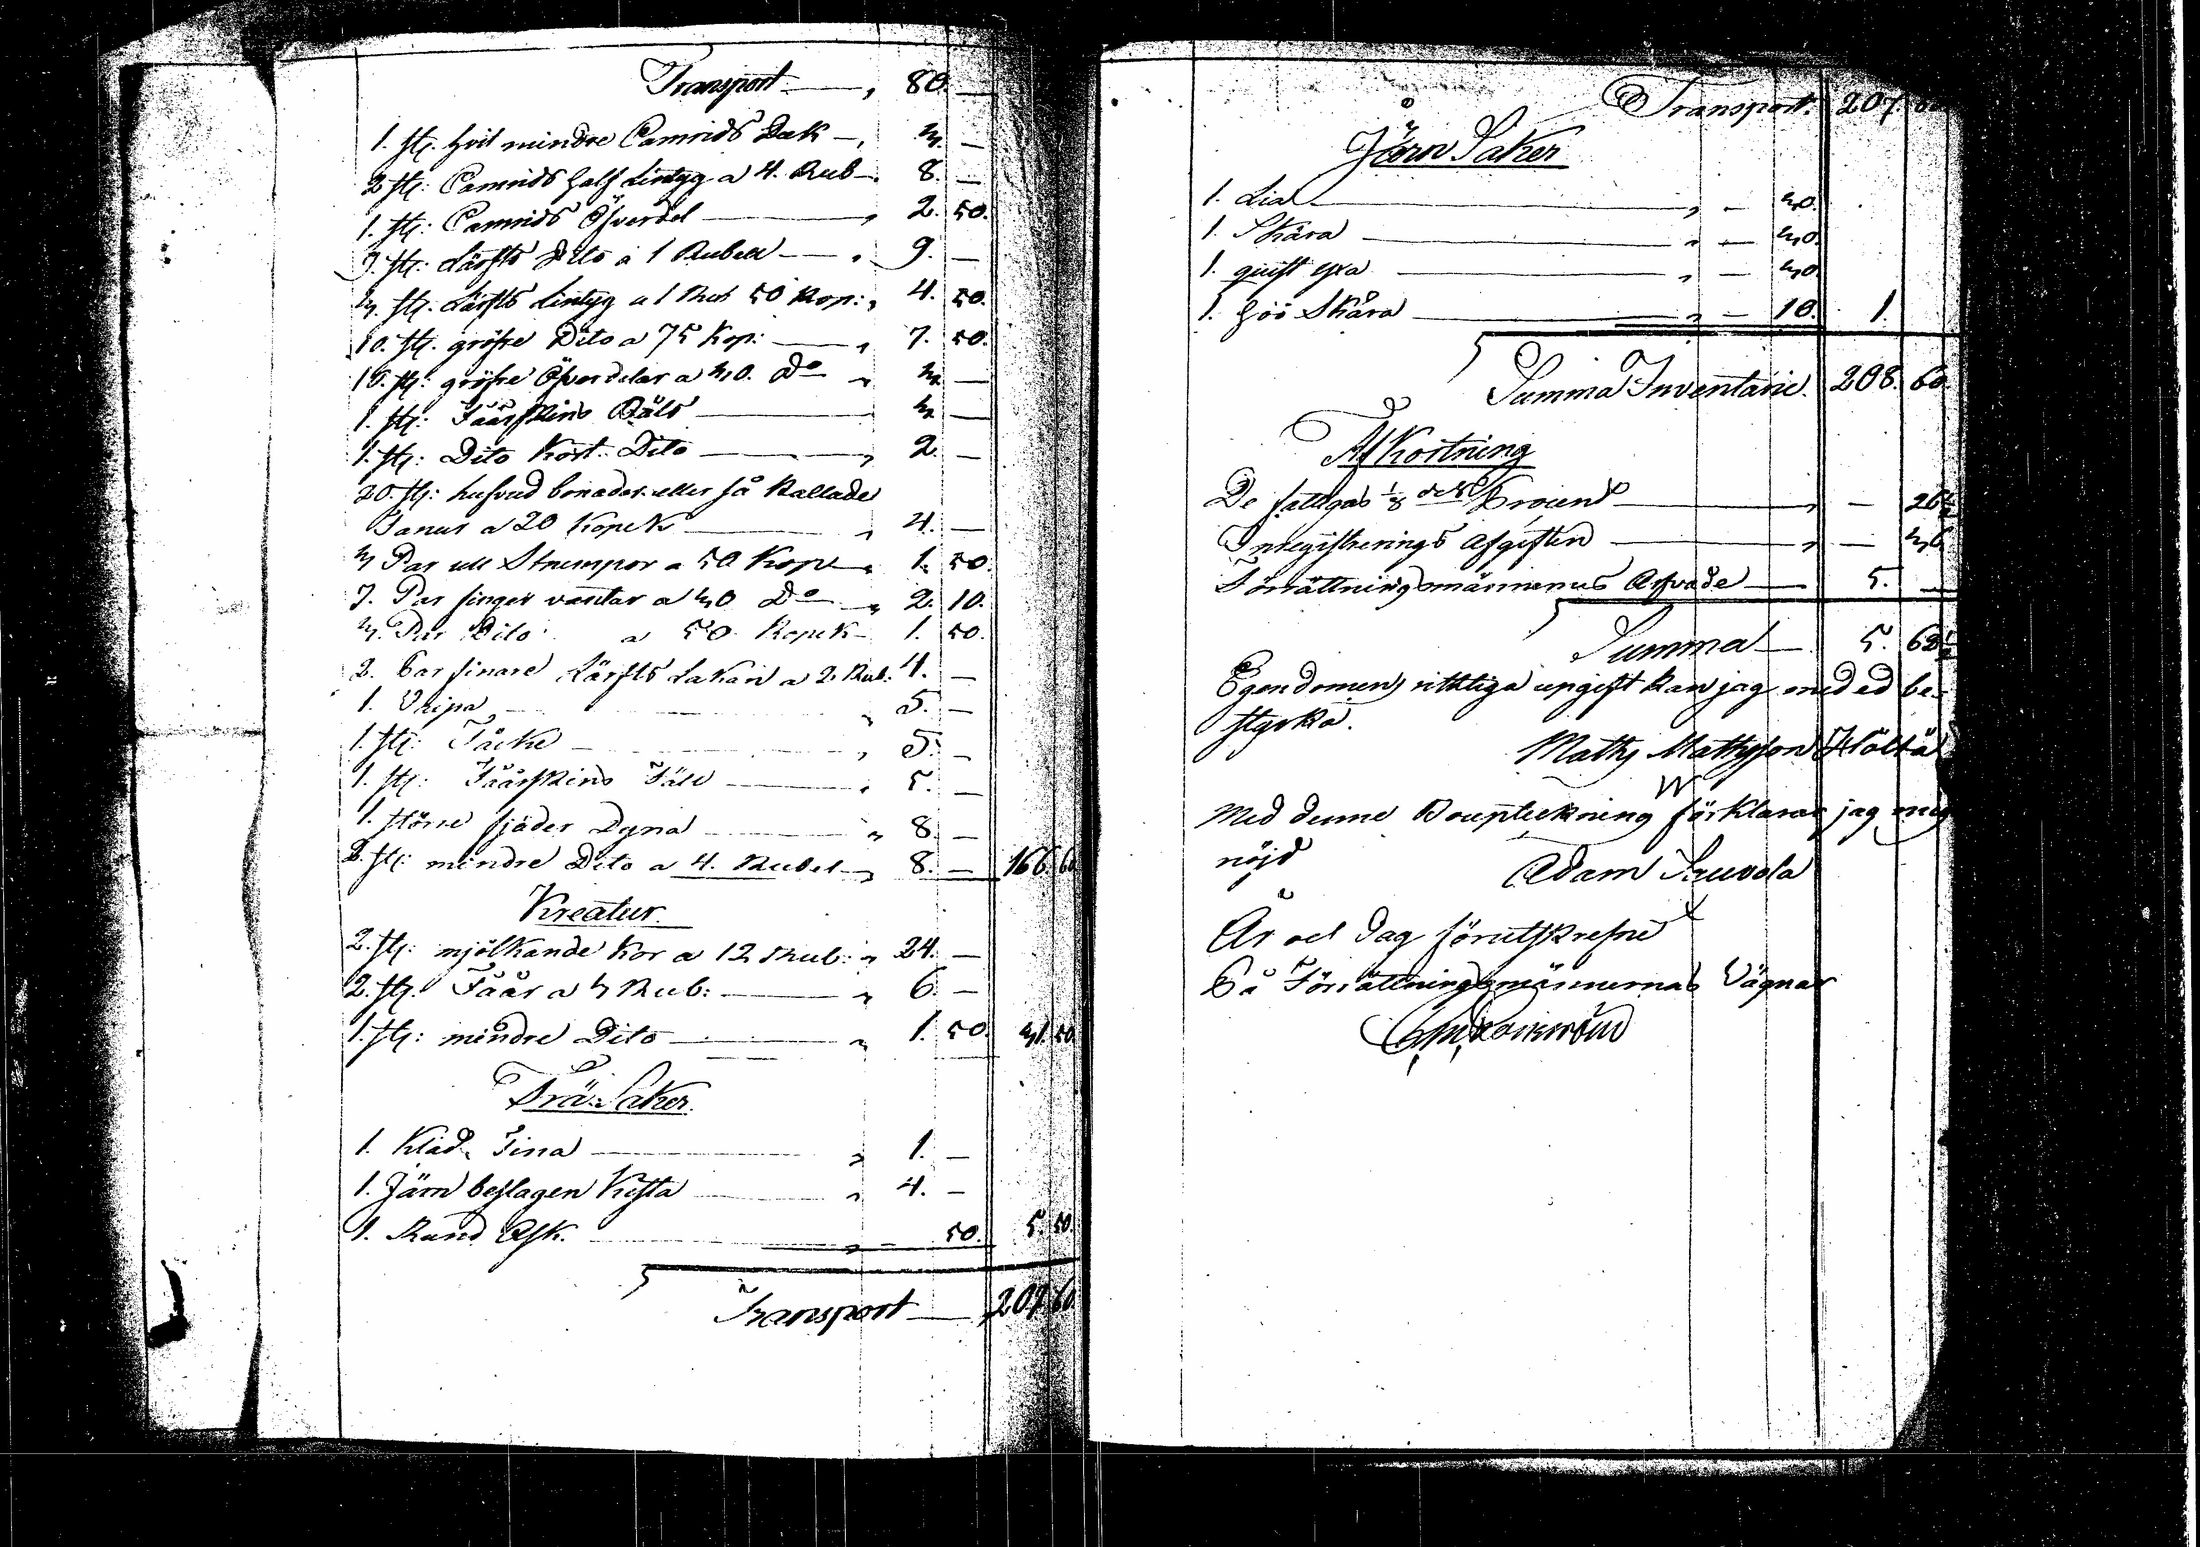 Transport — " 80. —
1. st: hvit mindre Camrids Duk — " 3. —
2 st: Camrids half Lintyg a 4. Rub — 8. —
1. st: Camrids Öfverdel — " 2. 50.
9. st: Lärfts Dito a 1 Rubel — " 9. —
3 st: Lärfts Lintyg a 1 Rub 50 Kop: " 4. 50.
10. st. gröfre Dito a 75 Kop: — " 7. 50.
10. st: gröfre Öfverdelar a 30. Do " 3. —
1. st: Fåårskins Päls — " 3. —
1. st: Dito Kort Dito — " 2. —
20. st: hufvud bonader eller så Kallade
Tanur a 20 Kopek — " 4. —
3 Par ull Strumpor a 50 Kop " 1. 50.
7. Par finger vantar a 30 Do " 2. 10.
3. Par Dito a 50. Kopek — 1. 50.
2. Par finare Lärfts Lakan a 2. Rub. 4. —
1. Ukipa — " 5. —
1. st: Täcke — " 5. —
1. st: Fåårskins Fäll — " 5. —
1. större fjäder Dyna — " 8. —
2. st: mindre Dito a 4. Rubel " 8. — 166. 60
Kreatur.
2. st: mjölkande Kor a 12 Rub: " 24. —
2. st: Fåår a 3 Rub: — " 6. —
1. st: mindre Dito — " 1. 50. 31. 50.
Trä Saker.
1. Kläd Tina — " 1. —
1. Järn beslagen Kista — " 4. —
1. Rund Ask. — " — 50. 5. 50.
Transport — 207. 60
Transport. 207. 60
Jern Saker
1. Lia — " — 30.
1. Skära — " — 30.
1. quist yxa — " — 30.
1. höö Skära — " — 10. 1.
Summa Inventarie. 208. 60
Af Kortning
De fattigas 1/8 dels Procent — " — 26 1/2
Inregistrerings Afgiften — " — 36
Förrättningsmännernas Arfvode — 5. —
Summa — 5. 62 1/2
Egendomens riktiga upgift kan jag med ed be-
styrka.
Matts Mattsson Höltä
Med denna Boupteckning förklarar jag mig
nöjd
Adam Sauvola
År och Dag förutskrefne
På Förrättningsmännernas Vägnar